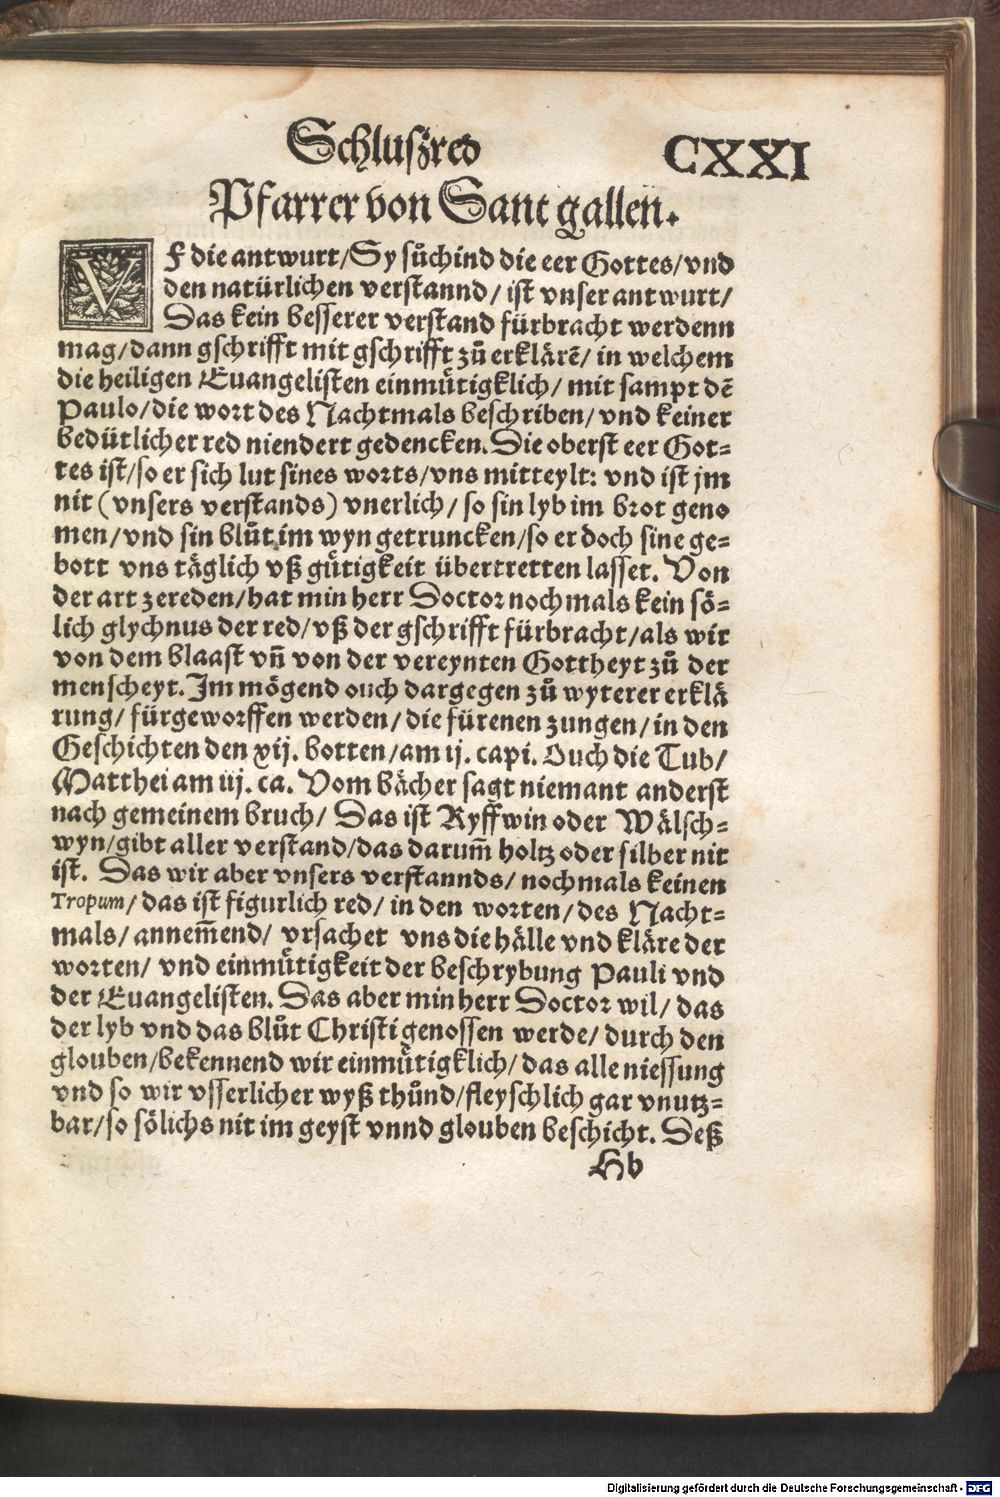 Schluszred CXXI
Pfarrer von Sant gallen.
VF die antwurt/Sy suͦchind die eer Gottes/vnd
den natürlichen verstannd/ ist vnser antwurt/
Das kein besserer verstand fürbracht werdenn
mag/dann gschrifft mit gschrifft zuͦ erklärẽ/ in welchem
die heiligen Euangelisten einmuͤtigklich/ mit sampt dẽ
Paulo/die wort des Nachtmals beschriben/ vnd keiner
bedütlicher red niendert gedencken. Die oberst eer Got⸗
tes ist/so er sich lut sines worts/vns mitteylt: vnd ist jm
nit (vnsers verstands) vnerlich/ so sin lyb im brot geno
men/vnd sin bluͦt im wyn getruncken/so er doch sine ge⸗
bott vns täglich vß guͤtigkeit übertretten lasset. Von
der art zereden/hat min herr Doctor nochmals kein sö⸗
lich glychnus der red/vß der gschrifft fürbracht/als wir
von dem blaast vñ von der vereynten Gottheyt zuͦ der
menscheyt. Im mögend ouch dargegen zuͦ wyterer erklä
rung/ fürgeworffen werden/die fürenen zungen/in den
Geschichten den xij. botten/am ij. capi. Ouch die Tub/
Matthei am iij. ca. Vom bächer sagt niemant anderst
nach gemeinem bruch/ Das ist Ryffwin oder Wälsch⸗
wyn/gibt aller verstand/das darum̃ holtz oder silber nit
ist. Das wir aber vnsers verstannds/ nochmals keinen
Tropum/ das ist figurlich red/ in den worten/des Nacht⸗
mals/ annem̃end/ vrsachet vns die hälle vnd kläre der
worten/ vnd einmuͤtigkeit der beschrybung Pauli vnd
der Euangelisten. Das aber min herr Doctor wil/ das
der lyb vnd das bluͦt Christi genossen werde/ durch den
glouben/bekennend wir einmuͤtigklich/ das alle niessung
vnd so wir vsserlicher wyß thuͦnd/fleyschlich gar vnutz⸗
bar/so sölichs nit im geyst vnnd glouben beschicht. Deß
Hb
Digitalisierung gefördert durch die Deutsche Forschungsgemeinschaft - DFG